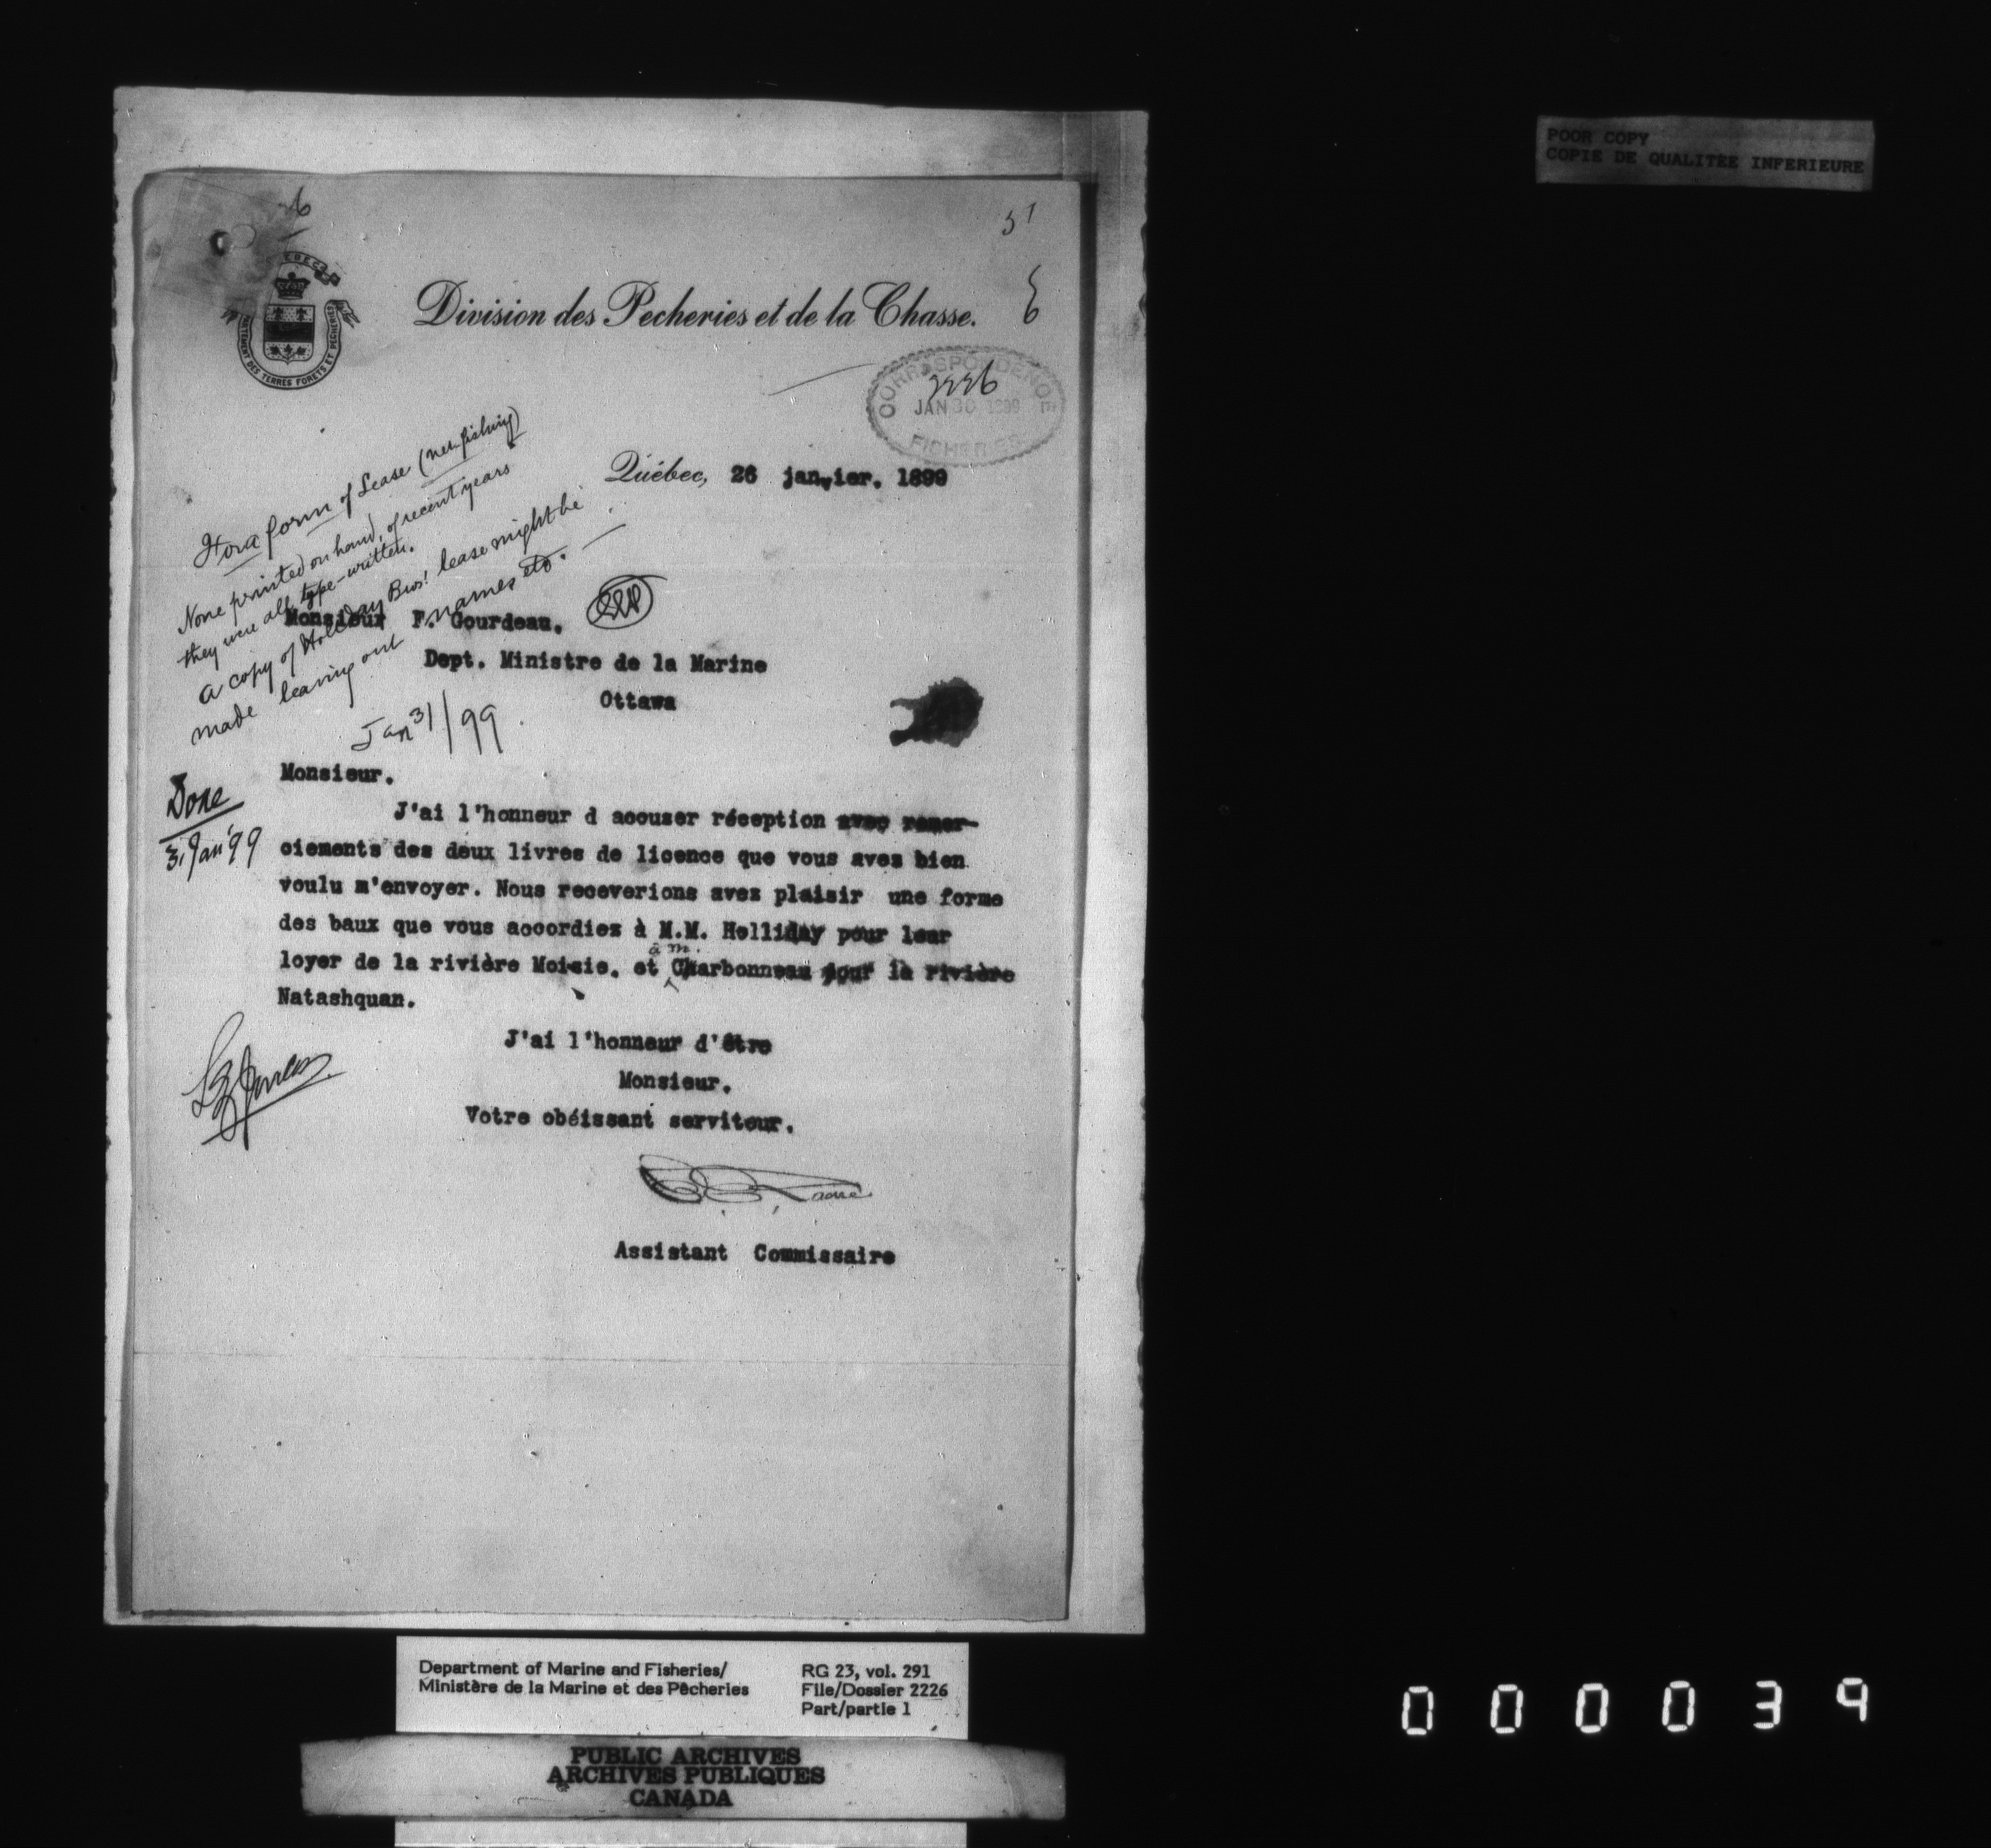 POOR COPY
COPIE DE QUALITÉE INFERIEURE
51
DÉPARTEMENT DES TERRES FORETS ET PECHERIES
Division des Pecheries et de la Chasse.
CORRESPONDENCE
2226
JAN 30 1899
FISHERIES
Québec, 26 janvier. 1899
For a form of Lease (net fishing)
None printed on hand, of recent years
they were all type-written.
a copy of Holliday Bros' lease might be
made leaving out names etc.
Jan 31/99
Monsieur F. Gourdeau.
Dept. Ministre de la Marine
Ottawa
Monsieur.
Done
31 Jan '99
J'ai l'honneur d accuser réception avec remer-
ciements des deux livres de licence que vous aves bien
voulu m'envoyer. Nous receverions aves plaisir une forme
des baux que vous accordiez à M.M. Holliday pour leur
loyer de la rivière Moisie. et à M. Charbonneau pour la rivière
Natashquan.
J'ai l'honneur d'être
Monsieur.
Votre obéissant serviteur.
Assistant Commissaire
Department of Marine and Fisheries/
Ministère de la Marine et des Pêcheries
RG 23, vol. 291
File/Dossier 2226
Part/partie 1
PUBLIC ARCHIVES
ARCHIVES PUBLIQUES
CANADA
000039